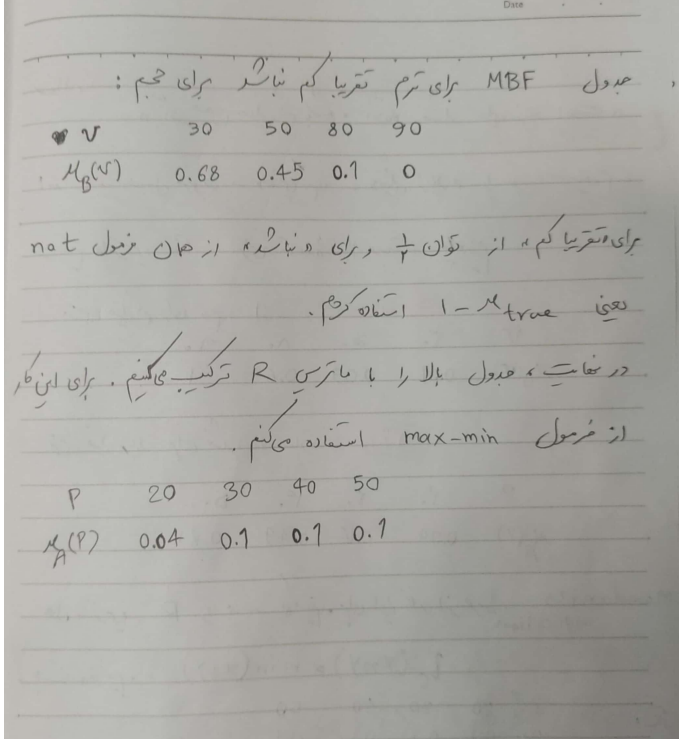 Date
جدول MBF برای ترم تقریبا کم نباشد برای حجم :
v 30 50 80 90
μB(v) 0.68 0.45 0.1 0
برای «تقریبا کم» از توان ½ و برای «نباشد» از همان فرمول not
یعنی 1 - μtrue استفاده کردیم.
در نهایت، جدول بالا را با ماتریس R ترکیب می‌کنیم. برای این کار
از فرمول max-min استفاده می‌کنیم.
P 20 30 40 50
μA(P) 0.04 0.1 0.1 0.1